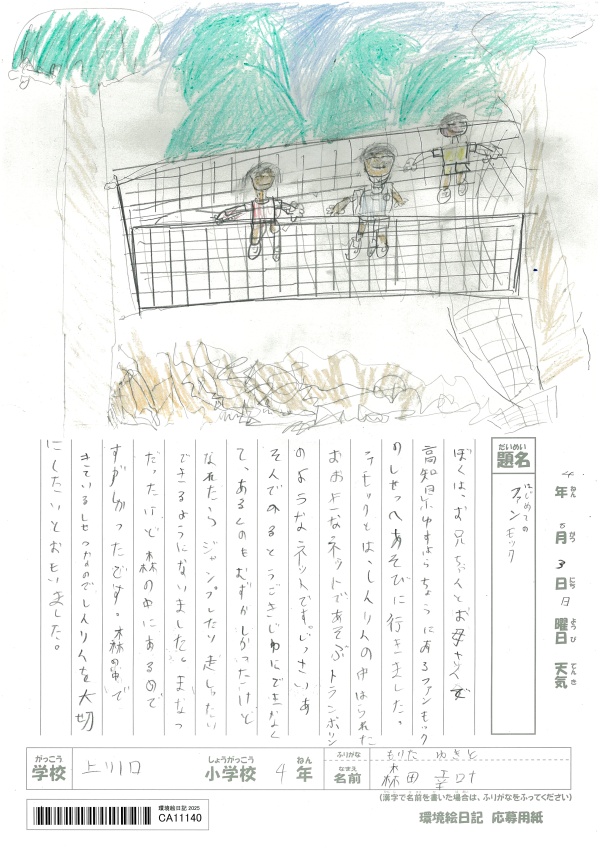 4年 5月3日 日曜日 天気
題名
はじめての
ファンモック
ぼくは、お兄ちゃんとお母さんで
高知県ゆすはらちょうにあるファンモック
のしせつへあそびに行きました。
ファンモックとは、しんりんの中はられた
おおよーなネットであそぶトランポリン
のようなネットです。じっさいあ
そんでのるとうごきじゆにできなく
て、あるくのもむずかしかったけど
なれたらジャンプしたり走しったり
できるようになりました。まなつ
だったけど森の中にあるので
すずしかったです。森の中で
きているしせつなのでしんりんを大切
にしたいとおもいました。
がっこう 学校 上川口 しょうがっこう 小学校 4 ねん 年
ふりがな もりた ゆきと
なまえ 名前 森田
(漢字で名前を書いた場合は、ふりがなをふってください)
環境絵日記 2025
CA11140
環境絵日記 応募用紙